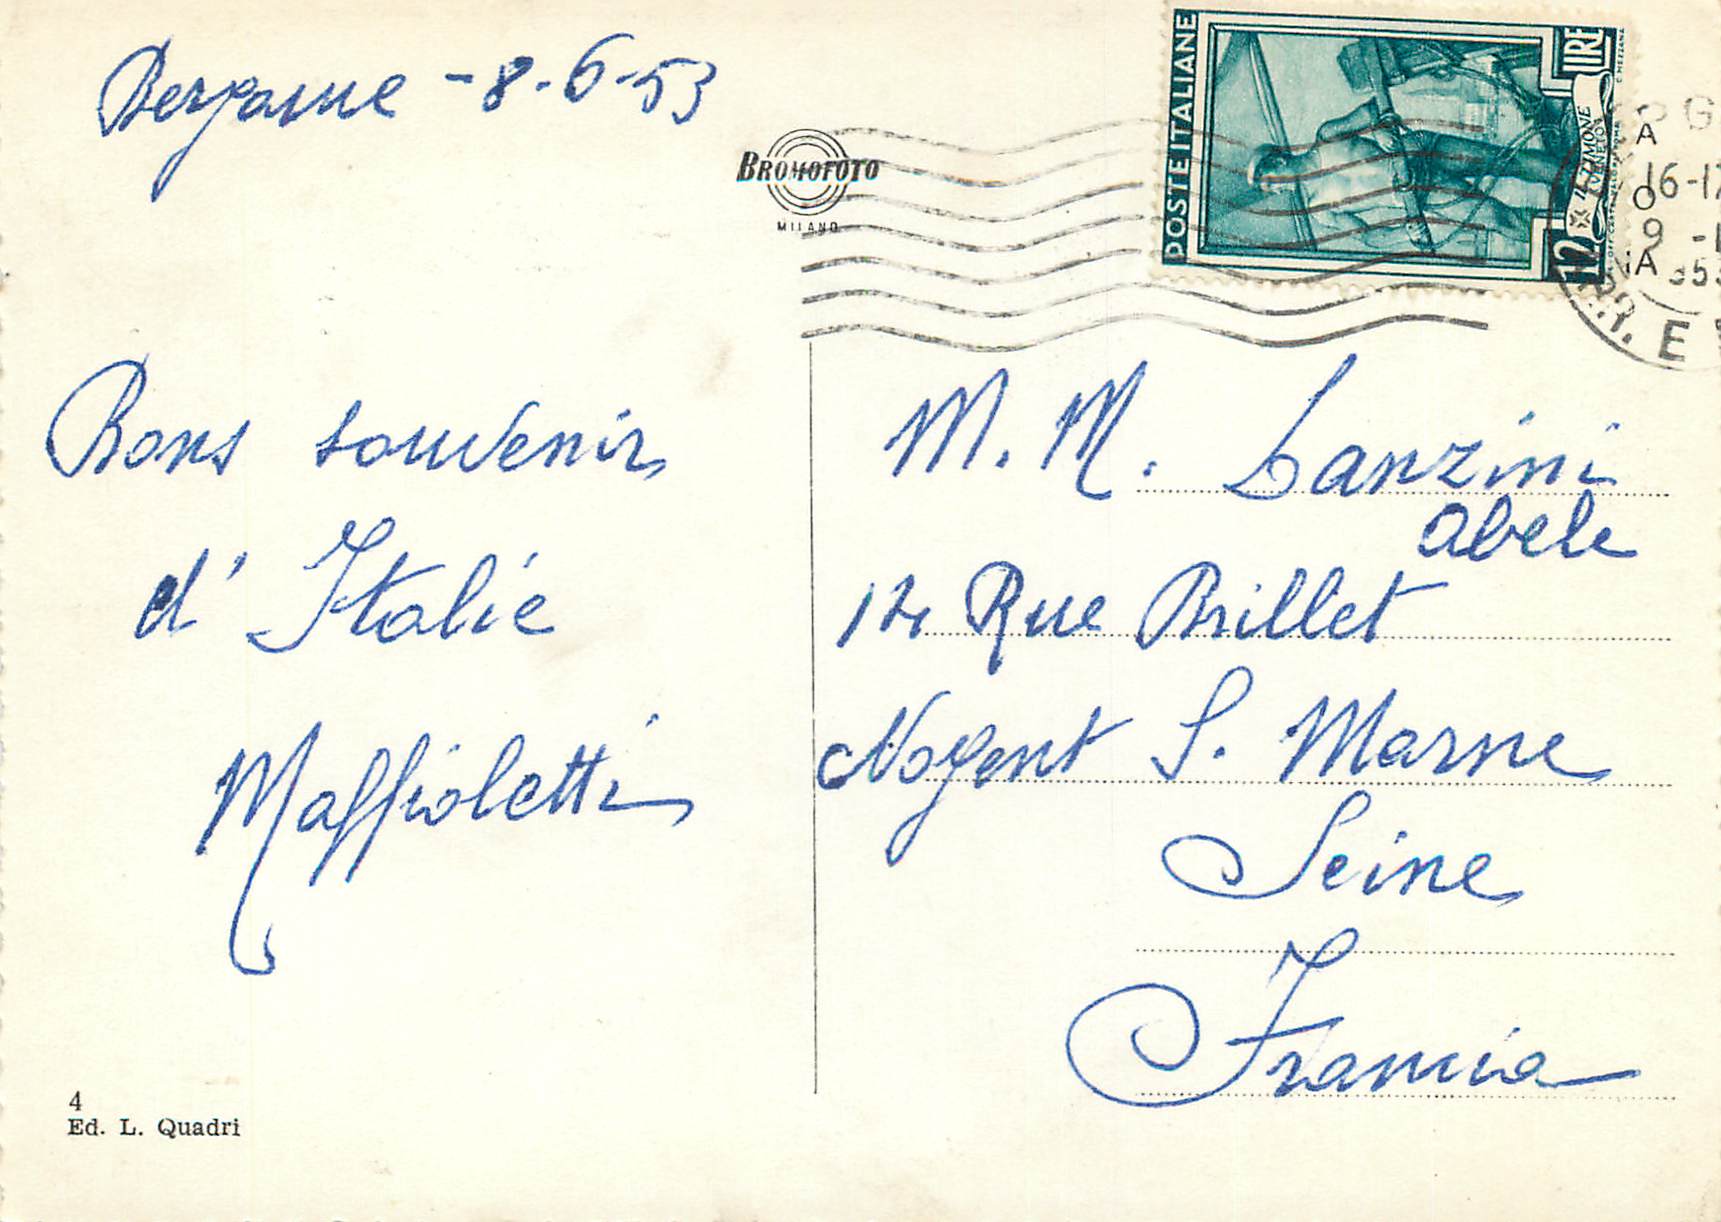 Bergame - 8-6-53
BROMOFOTO
MILANO
POSTE ITALIANE
12 LIRE
IL TIMONE
VENETO
16-17
9 -
Bons souvenirs
d'Italie
Maffioletti
M. M. Lanzini
Abele
12 Rue Brillet
Nogent S. Marne
Seine
Francia
4
Ed. L. Quadri